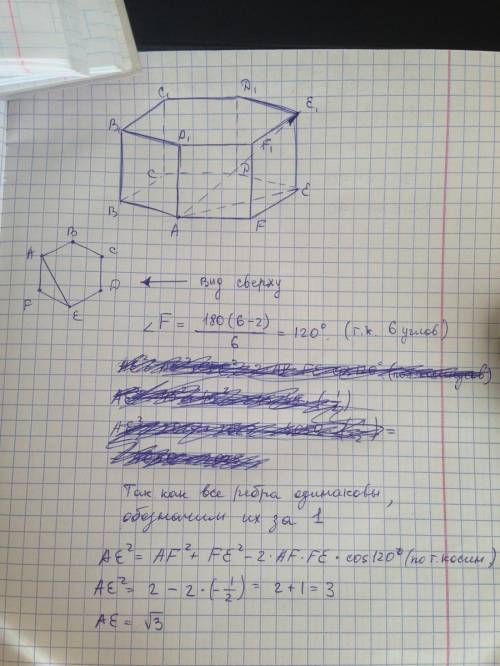 C₁ D₁
E₁
B₁ A₁
F₁
C D
E
B
A F
B
A C
F D
E
← вид сверху
∠F = 180(6-2)/6 = 120°. (т.к. 6 углов)
Так как все ребра одинаковы,
обозначим их за 1
AE² = AF² + FE² - 2·AF·FE·cos120° (по т. косин.)
AE² = 2 - 2·(-1/2) = 2+1 = 3
AE = √3